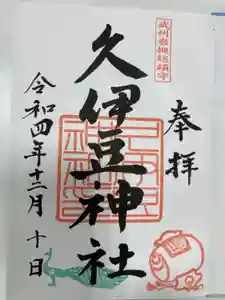 武州岩槻総鎮守
奉拝
久伊豆神社
令和四年十二月十日